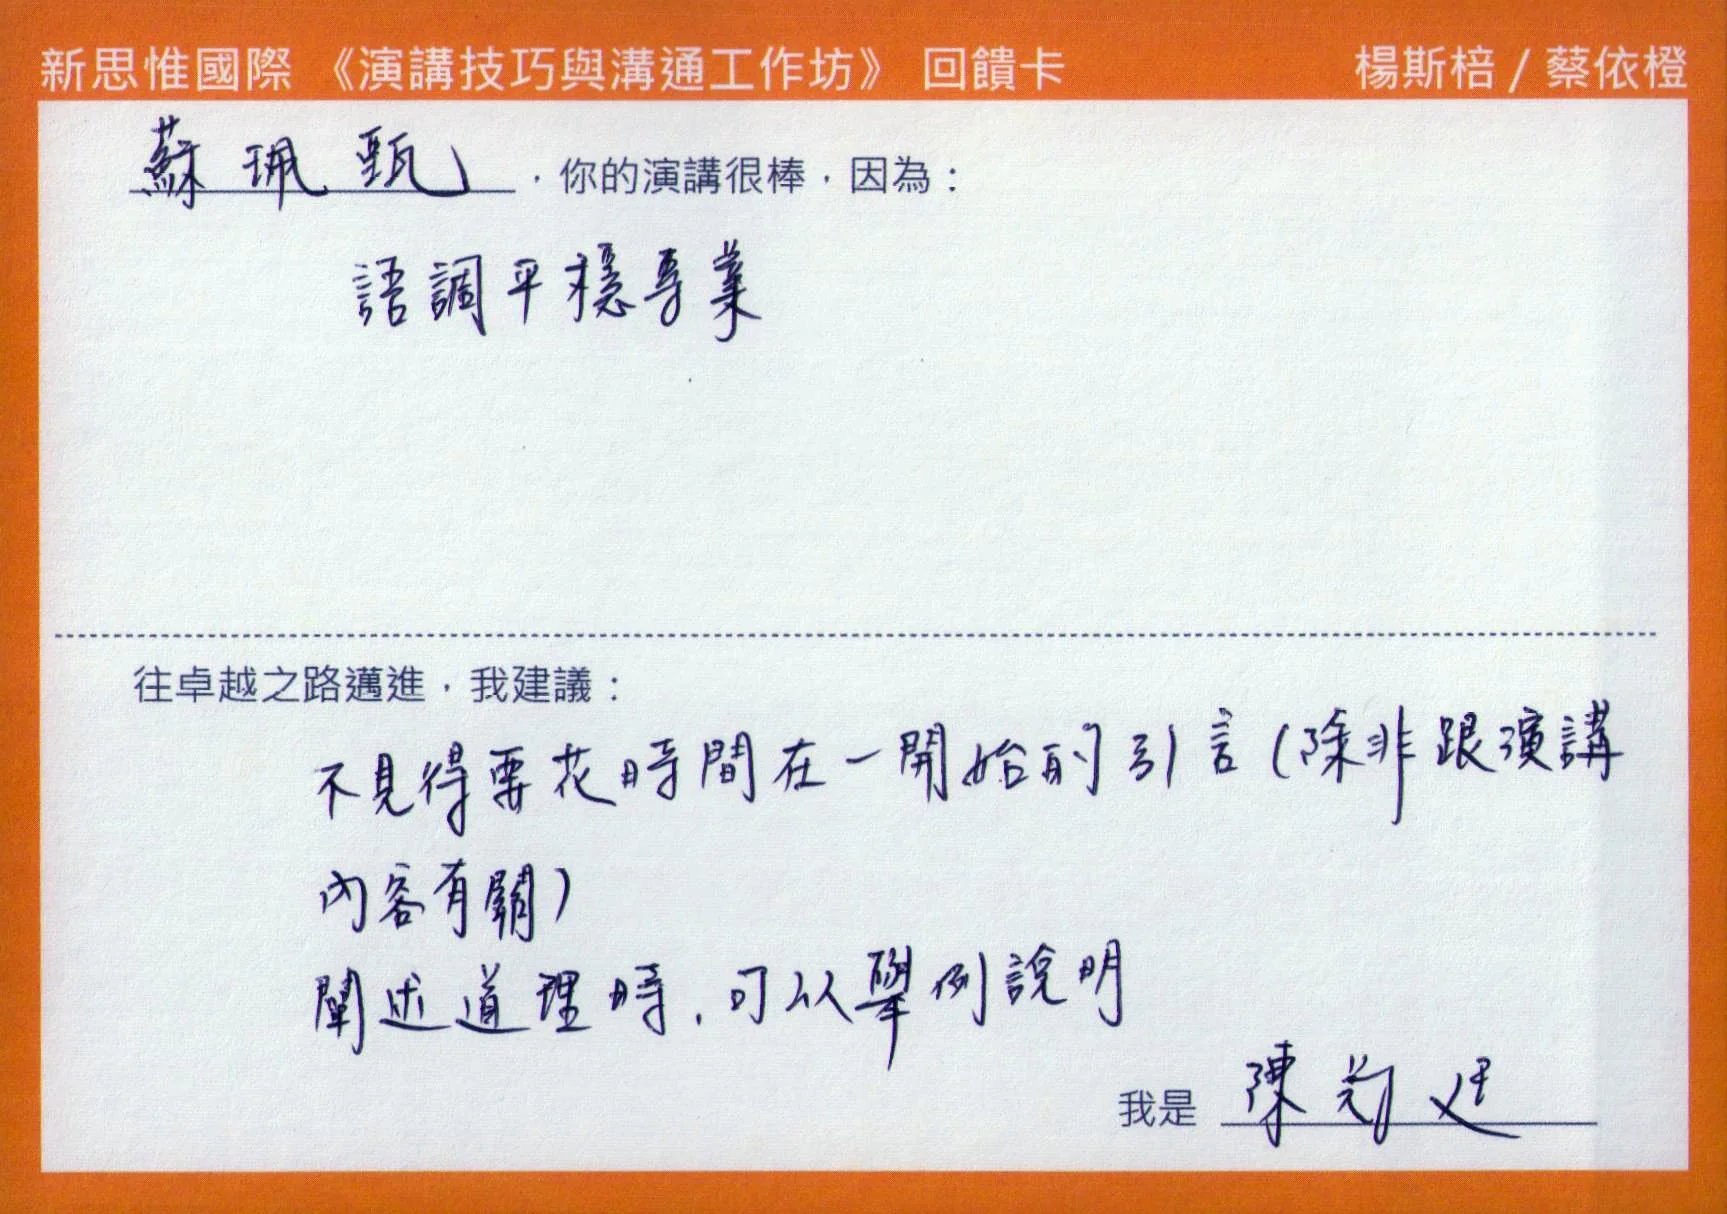 新思惟國際 《演講技巧與溝通工作坊》 回饋卡 楊斯棓 / 蔡依橙
蘇珮甄，你的演講很棒，因為：
語調平穩專業
往卓越之路邁進，我建議：
不見得要花時間在一開始的引言(除非跟演講
內容有關)
闡述道理時，可以舉例說明
我是 陳